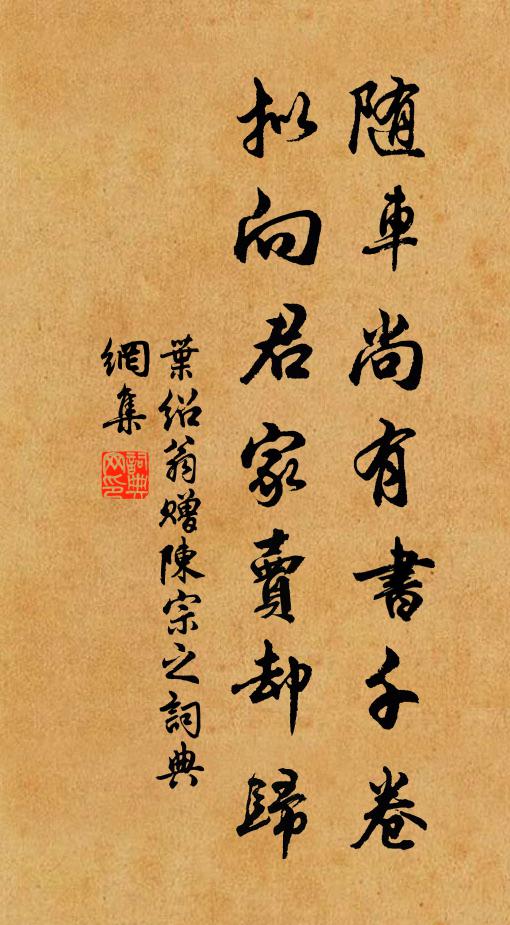 随車尚有書千卷
拟向君家賣却歸
葉紹翁赠陳宗之詞典
網集
詞典
網印